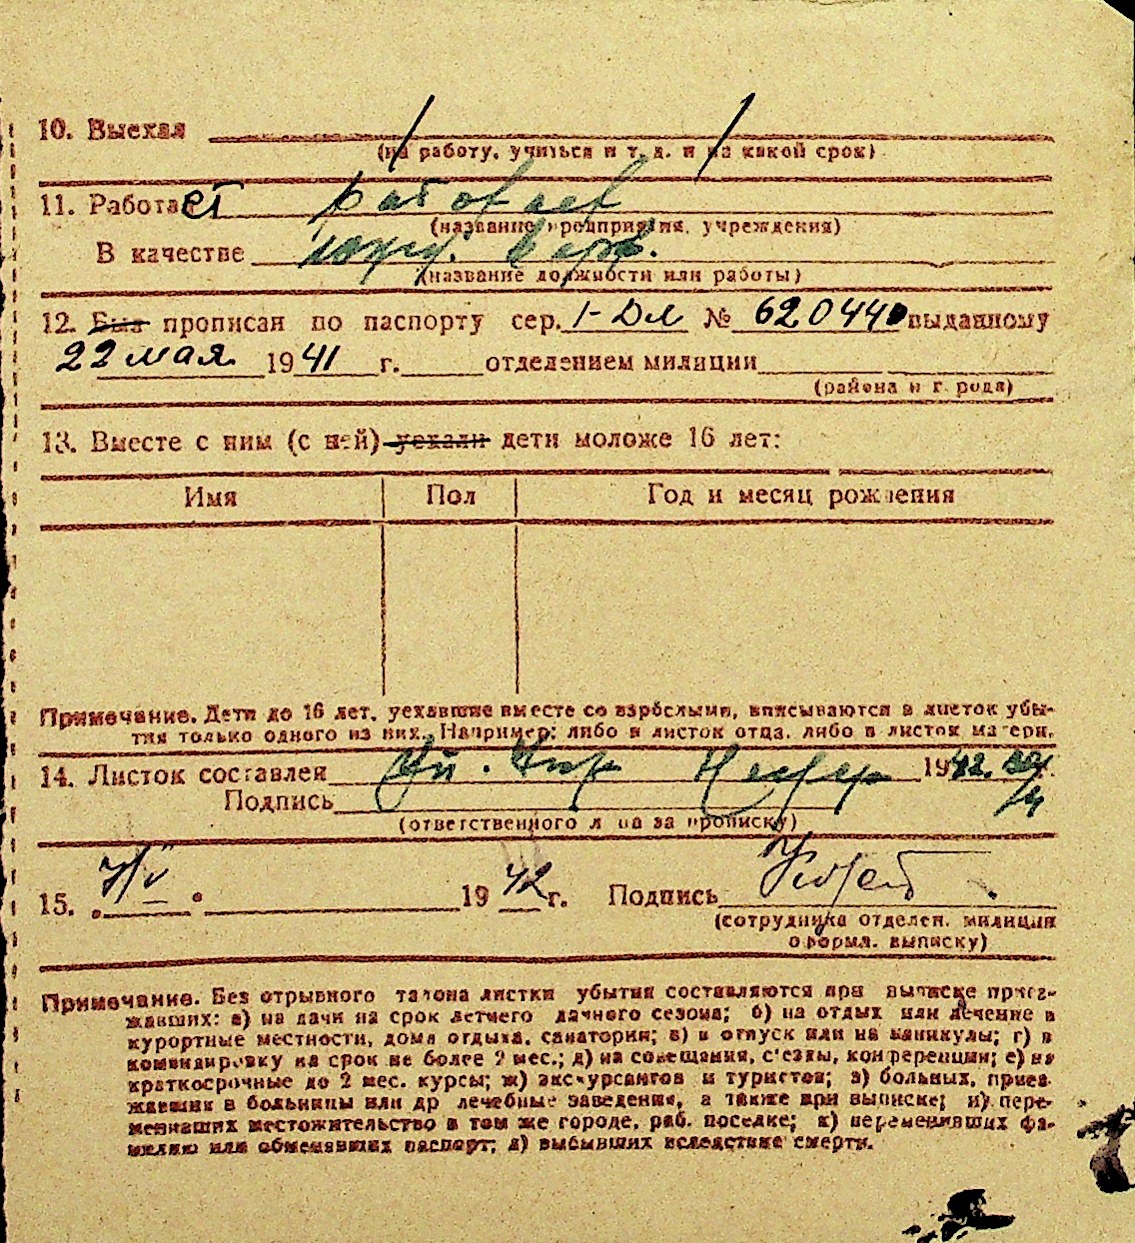 10. Выехал
(на работу, учиться и т. д. и на какой срок)
11. Работает работает
(название предприятия, учреждения)
В качестве
(название должности или работы)
12. Был прописан по паспорту сер. I-ДЛ № 620440 выданному
22 мая 1941 г. отделением милиции
(района и города)
13. Вместе с ним (с ней) уехали дети моложе 16 лет:
Имя Пол Год и месяц рождения
Примечание. Дети до 16 лет, уехавшие вместе со взрослыми, вписываются в листок убы-
тия только одного из них. Например: либо в листок отца, либо в листок матери.
14. Листок составлен 1942
Подпись
(ответственного лица за прописку)
15. 4/V 1942 г. Подпись
(сотрудника отделен. милиции
оформл. выписку)
Примечание. Без отрывного талона листки убытия составляются при выписке приез-
жавших: а) на дачи на срок летнего дачного сезона; б) на отдых или лечение в
курортные местности, дома отдыха, санатории; в) в отпуск или на каникулы; г) в
командировку на срок не более 2 мес.; д) на совещания, с'езды, конференции; е) на
краткосрочные до 2 мес. курсы; ж) экскурсантов и туристов; з) больных, приез-
жавших в больницы или др лечебные заведения, а также при выписке; и) пере-
менивших местожительство в том же городе, раб. поселке; к) переменивших фа-
милию или обменявших паспорт; л) выбывших вследствие смерти.